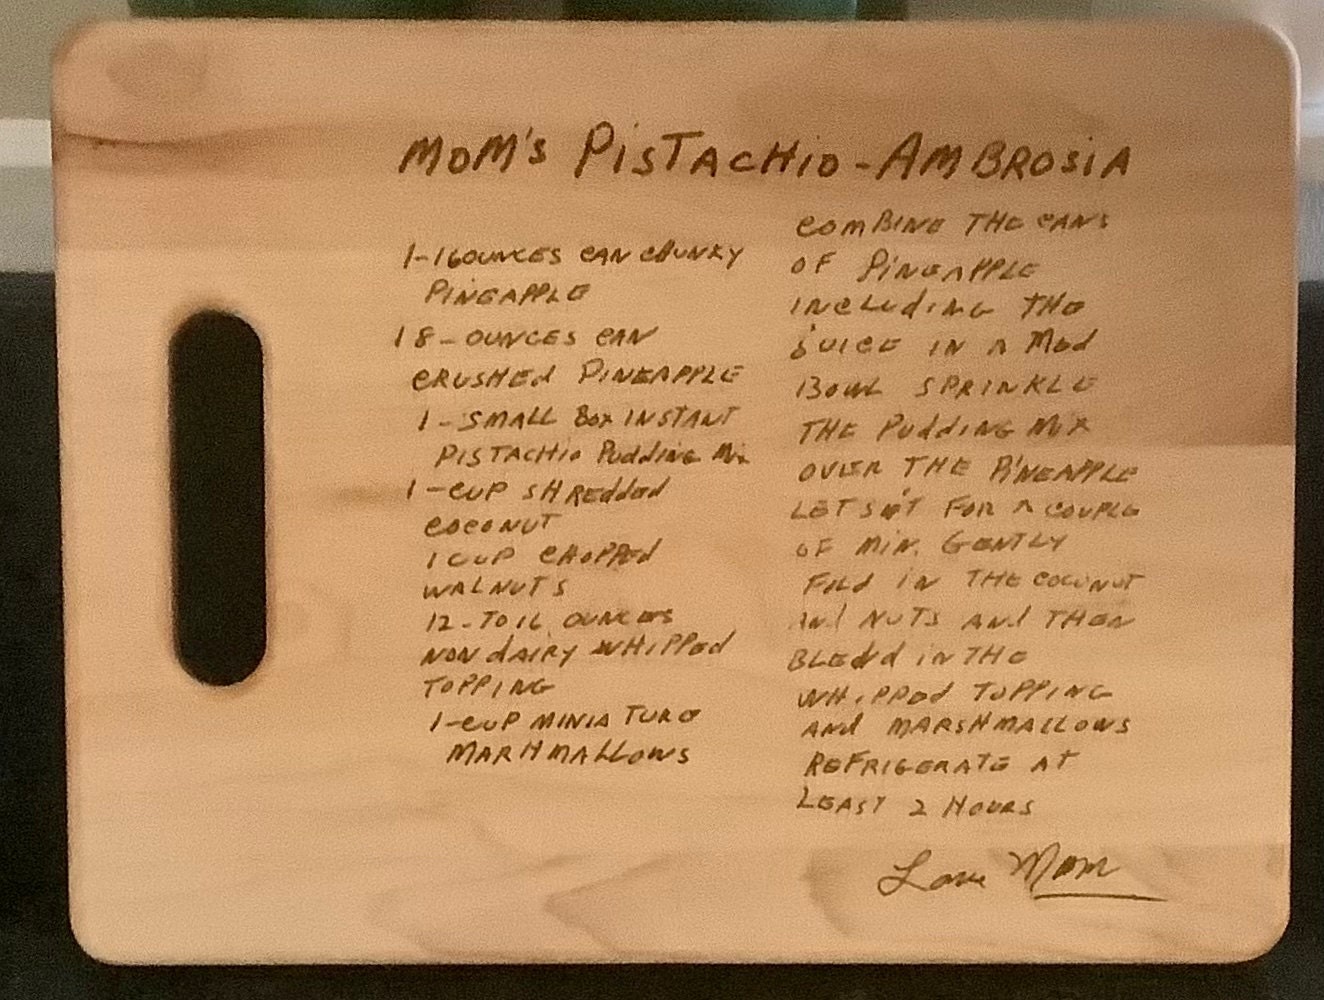 MOM'S PISTACHIO-AMBROSIA
1-16OUNCES CAN CHUNKY
PINEAPPLE
1 8-OUNCES CAN
CRUSHEd PINEAPPLE
1-SMALL BOX INSTANT
PISTACHIO PuddING MIX
1-CUP SHREdded
COCONUT
1 CUP CHOPPEd
WALNUTS
12-TO 16 OUNCES
NON dAIRY WHIPPEd
TOPPING
1-CUP MINIATURE
MARHMALLOWS
COMBINE THE CANS
OF PINEAPPLE
INCLUdING THE
JUICE IN A MEd
BOWL SPRINKLE
THE PUddING MIX
OVER THE PINEAPPLE
LET SIT FOR A COUPLE
OF MIN. GENTLY
FOLd IN THE COCONUT
ANd NUTS ANd THEN
BLENd IN THE
WHIPPEd TOPPING
ANd MARSHMALLOWS
REFRIGERATE AT
LEAST 2 HOURS
Love Mom